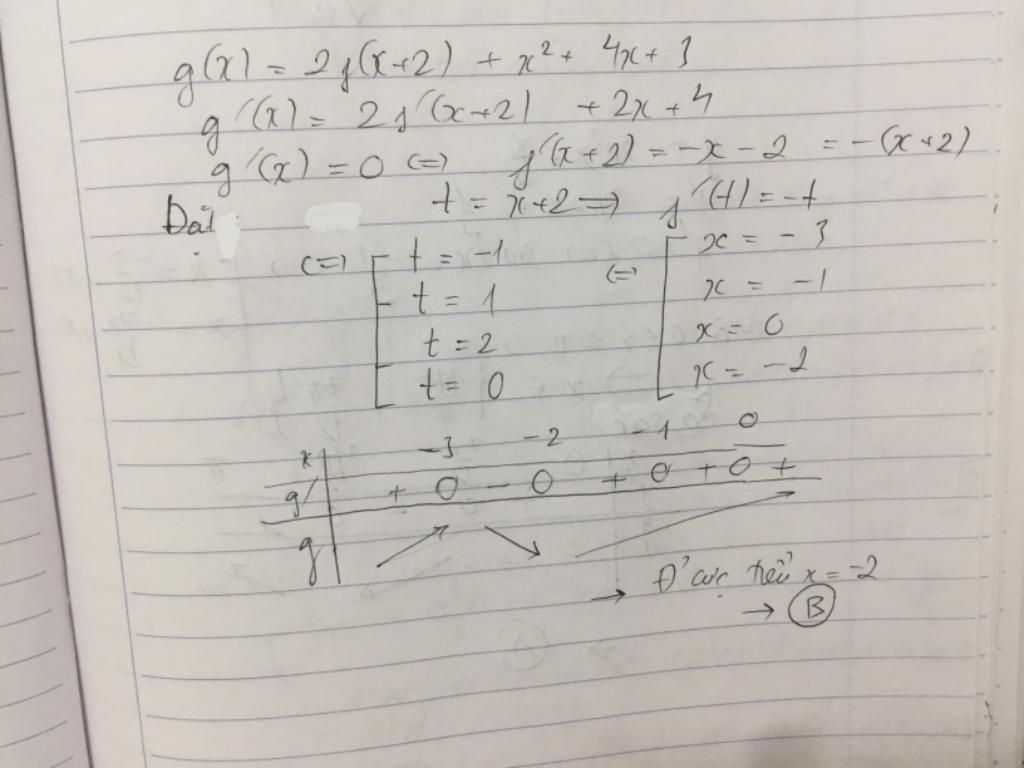 g(x) = 2f(x+2) + x² + 4x + 3
g'(x) = 2f'(x+2) + 2x + 4
g'(x) = 0 <=> f'(x+2) = -x - 2 = -(x+2)
Đặt t = x+2 => f'(t) = -t
<=> [ t = -1 <=> [ x = -3
t = 1 x = -1
t = 2 x = 0
t = 0 x = -2
x -3 -2 -1 0
g' + 0 - 0 + 0 + 0 +
g ↗ ↘ ↗
→ Đ' cực tiểu x = -2
→ B